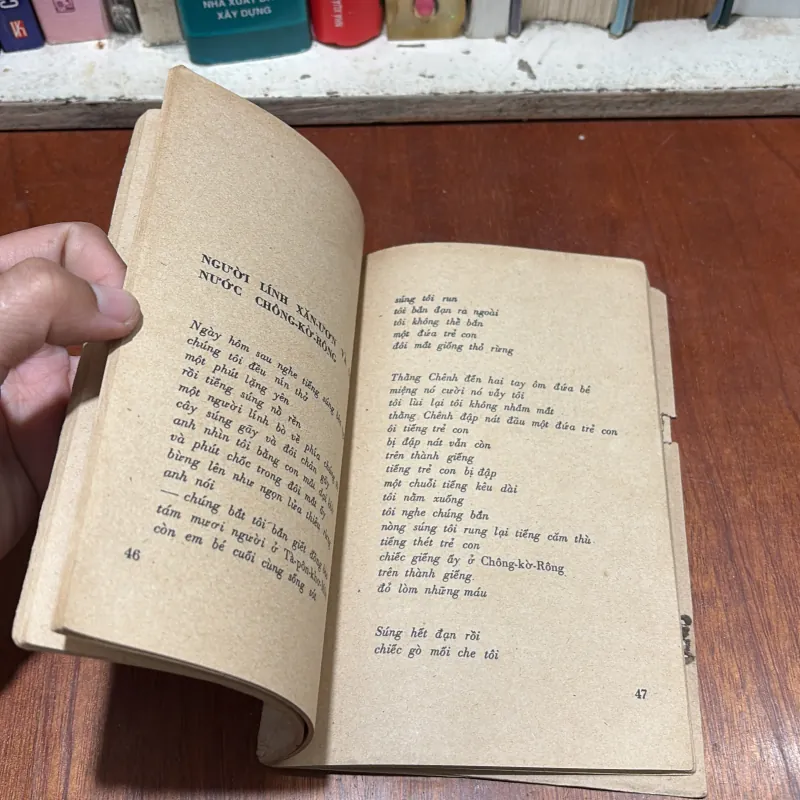 NHÀ XUẤT BẢN
XÂY DỰNG
NGƯỜI LÍNH XĂN-UƠN VÀ
NƯỚC CHÔNG-KỜ-RÔNG
Ngày hôm sau nghe tiếng súng
chúng tôi đều nín thở
một phút lặng yên
rồi tiếng súng nổ rền
một người lính bò về phía chúng
cây súng gãy và đôi chân gãy
anh nhìn tôi bằng con mắt
và phút chốc trong đôi mắt ấy
bừng lên như ngọn lửa thiêu
anh nói
— chúng bắt tôi bắn giết đồng bào
tám mươi người ở
còn em bé cuối cùng sống sót
46
súng tôi run
tôi bắn đạn ra ngoài
tôi không thể bắn
một đứa trẻ con
đôi mắt giống thỏ rừng
Thằng Chênh đến hai tay ôm đứa bé
miệng nó cười nó vẫy tôi
tôi lùi lại tôi không nhắm mắt
thằng Chênh đập nát đầu một đứa trẻ con
ôi tiếng trẻ con
bị đập nát vẫn còn
trên thành giếng
tiếng trẻ con bị đập
một chuỗi tiếng kêu dài
tôi nằm xuống
tôi nghe chúng bắn
nòng súng tôi rung lại tiếng căm thù
tiếng thét trẻ con
chiếc giếng ấy ở Chông-kờ-Rông
trên thành giếng
đỏ lòm những máu
Súng hết đạn rồi
chiếc gò mối che tôi
47